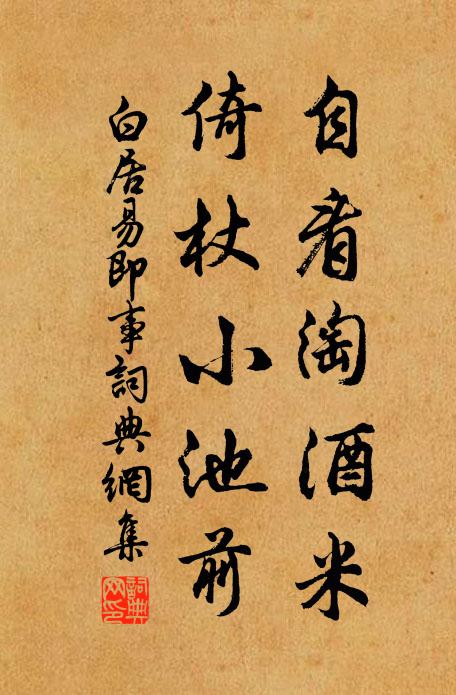 自看淘酒米
倚杖小池前
白居易即事詞典網集
詞典網印